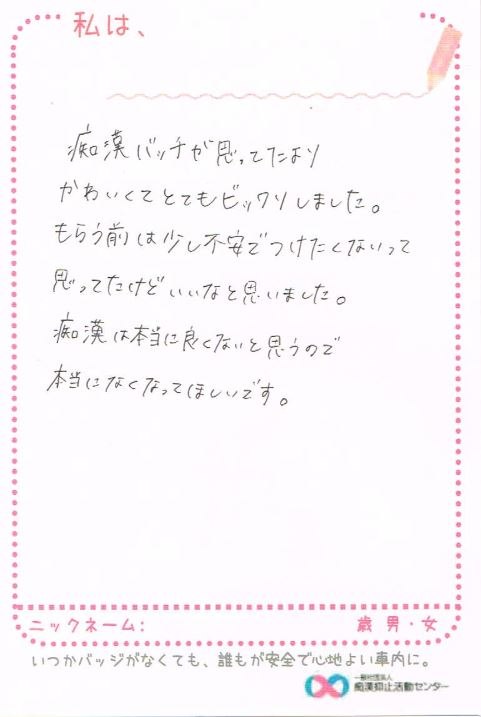 私は、
痴漢バッチが思ってたより
かわいくてとてもビックリしました。
もらう前は少し不安でつけたくないって
思ってたけどいいなと思いました。
痴漢は本当に良くないと思うので
本当になくなってほしいです。
ニックネーム: 歳 男・女
いつかバッジがなくても、誰もが安全で心地よい車内に。
一般社団法人
痴漢抑止活動センター